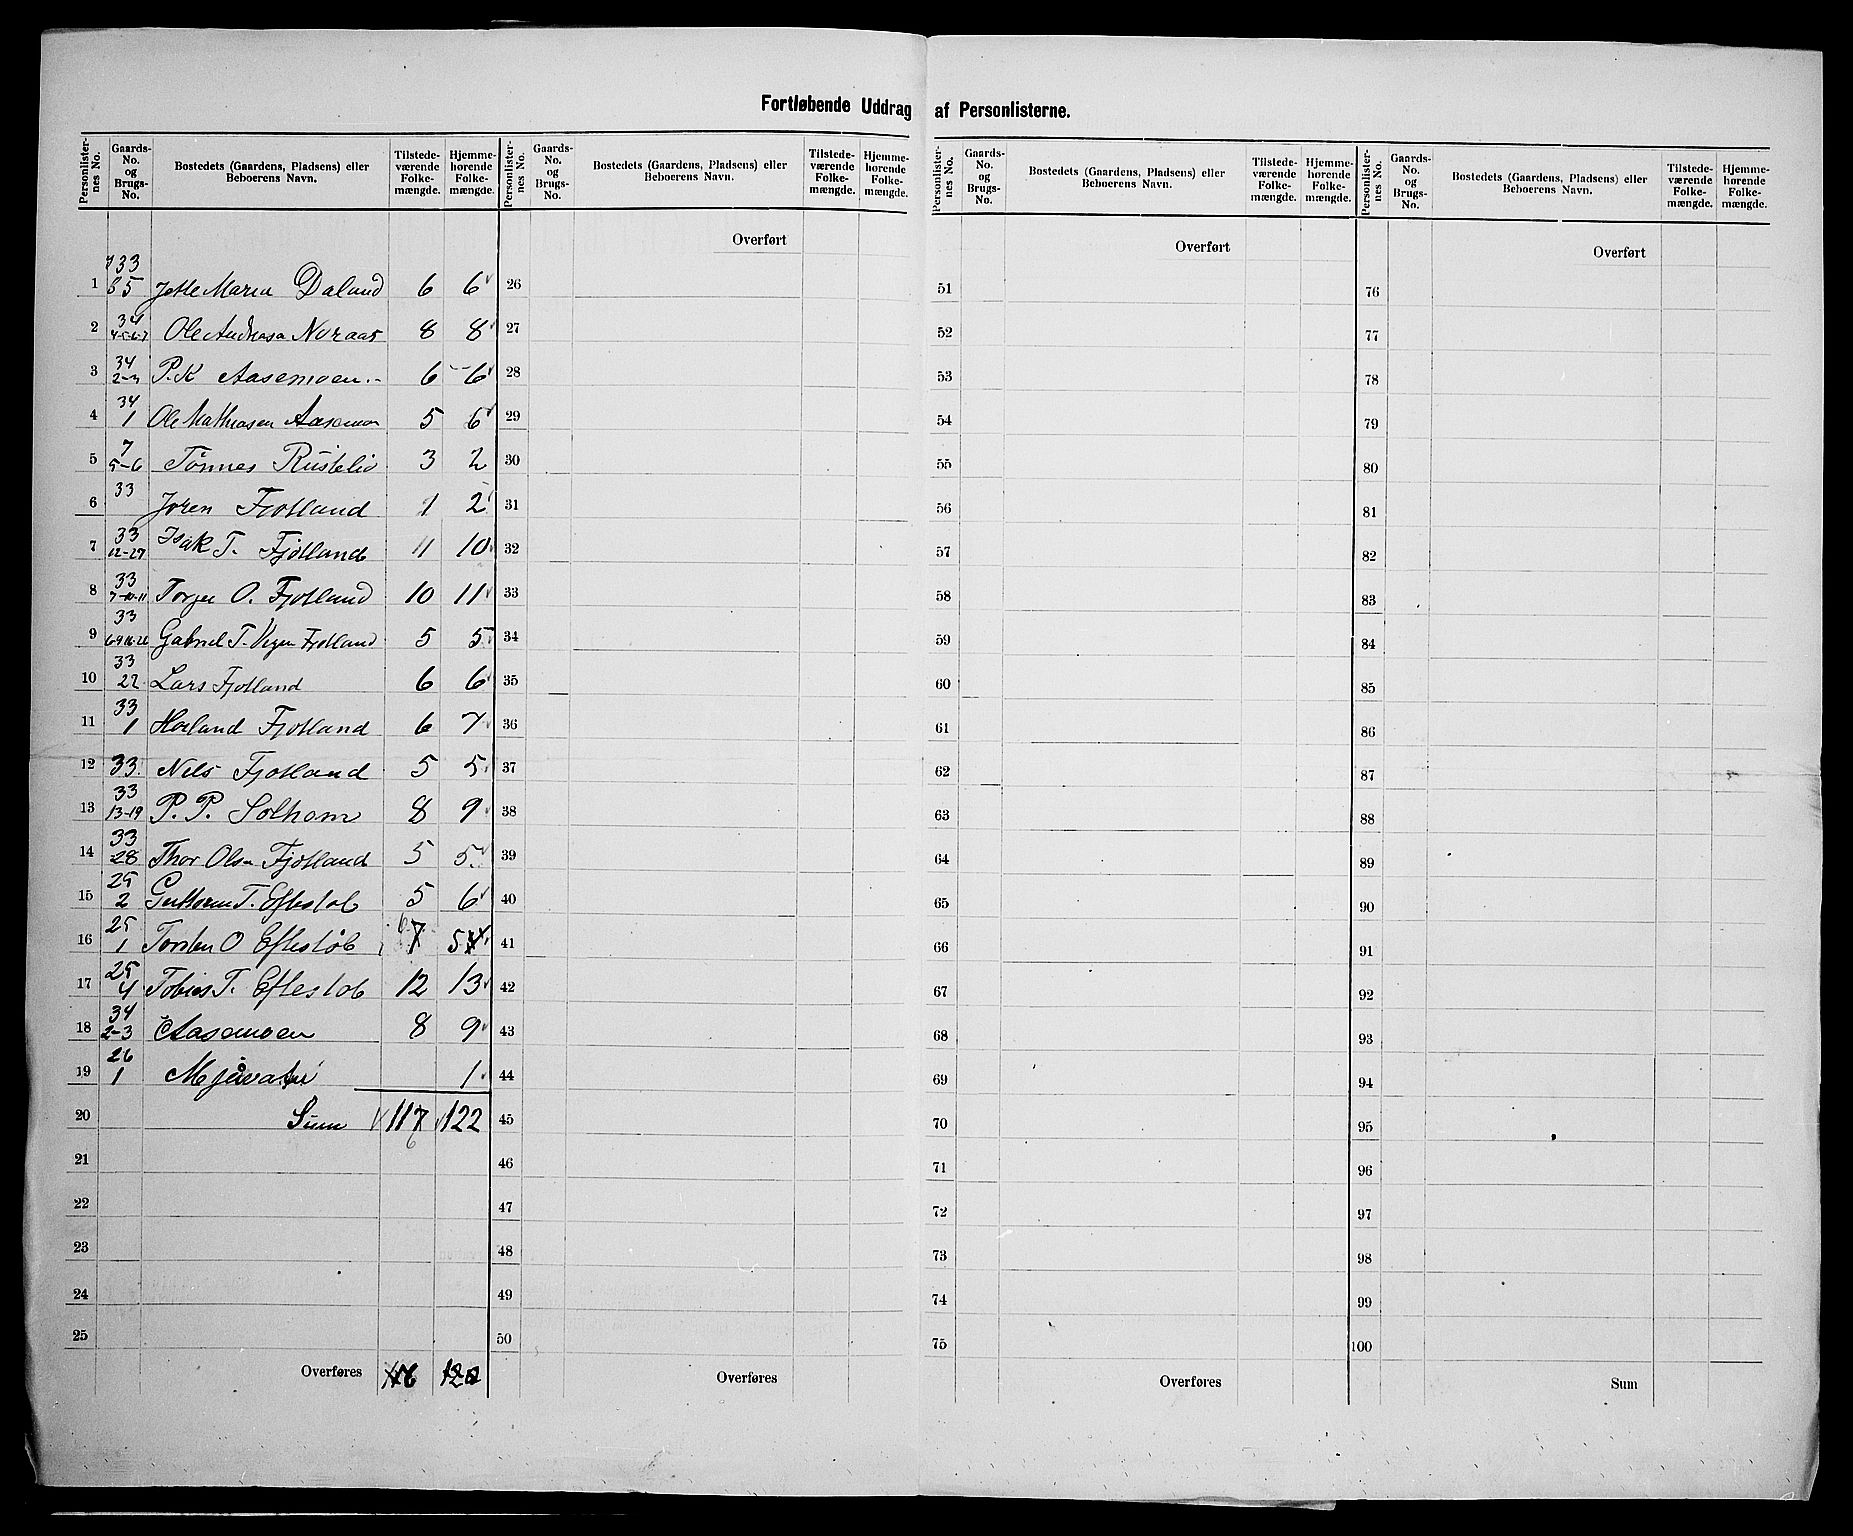 Fortløbende Uddrag af Personlisterne.
Personlisternes No. | Gaards-No. og Brugs-No. | Bostedets (Gaardens, Pladsens) eller Beboerens Navn. | Tilstedeværende Folkemængde. | Hjemmehørende Folkemængde.
Personlisternes No. | Gaards-No. og Brugs-No. | Bostedets (Gaardens, Pladsens) eller Beboerens Navn. | Tilstedeværende Folkemængde. | Hjemmehørende Folkemængde.
Personlisternes No. | Gaards-No. og Brugs-No. | Bostedets (Gaardens, Pladsens) eller Beboerens Navn. | Tilstedeværende Folkemængde. | Hjemmehørende Folkemængde.
Personlisternes No. | Gaards-No. og Brugs-No. | Bostedets (Gaardens, Pladsens) eller Beboerens Navn. | Tilstedeværende Folkemængde. | Hjemmehørende Folkemængde.
Overført Overført Overført
1 33 Maria Daland 6 6 26 51 76
2 34 Ole Noraas 8 8 27 52 77
3 34 2-3 P. K Aasemoen 6 6 28 53 78
4 34 1 Ole Mathiasen 5 6 29 54 79
5 7 5-6 Tönnes Rustelid 3 2 30 55 80
6 33 Joren Fjotland 1 2 31 56 81
7 33 12-27 Isak T. Fjotland 11 10 32 57 82
8 33 7-10-11 Torger O. Fjotland 10 11 33 58 83
9 33 Gabriel T. Fjotland 5 5 34 59 84
10 33 22 Lars Fjotland 6 6 35 60 85
11 33 1 Fjotland 6 7 36 61 86
12 33. Nels Fjotland 5 5 37 62 87
13 33 13-19 P. P. Solhom 8 9 38 63 88
14 33 28 Thor Olsn Fjotland 5 5 39 64 89
15 25 2 T. Eftestøl 5 6 40 65 90
16 25 1 Torsten O Eftestøl 7 5 4 41 66 91
17 25 4 Tobias T. Eftestøl 12 13 42 67 92
18 34 2-3 Aasemoen 8 9 43 68 93
19 26 1 1 44 69 94
20 Sum 117 122 45 70 95
6
21 46 71 96
22 47 72 97
23 48 73 98
24 49 74 99
25 50 75 100
Overføres 116 122 Overføres Overføres Sum